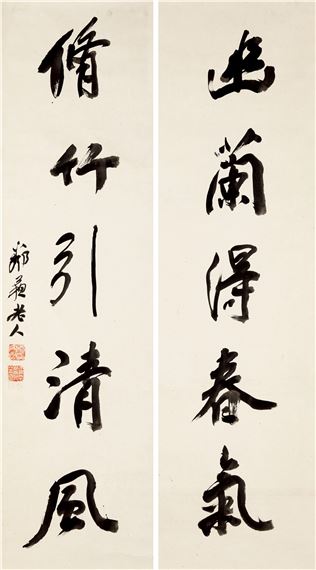 幽蘭得春氣
脩竹引清風
鄰蘇老人